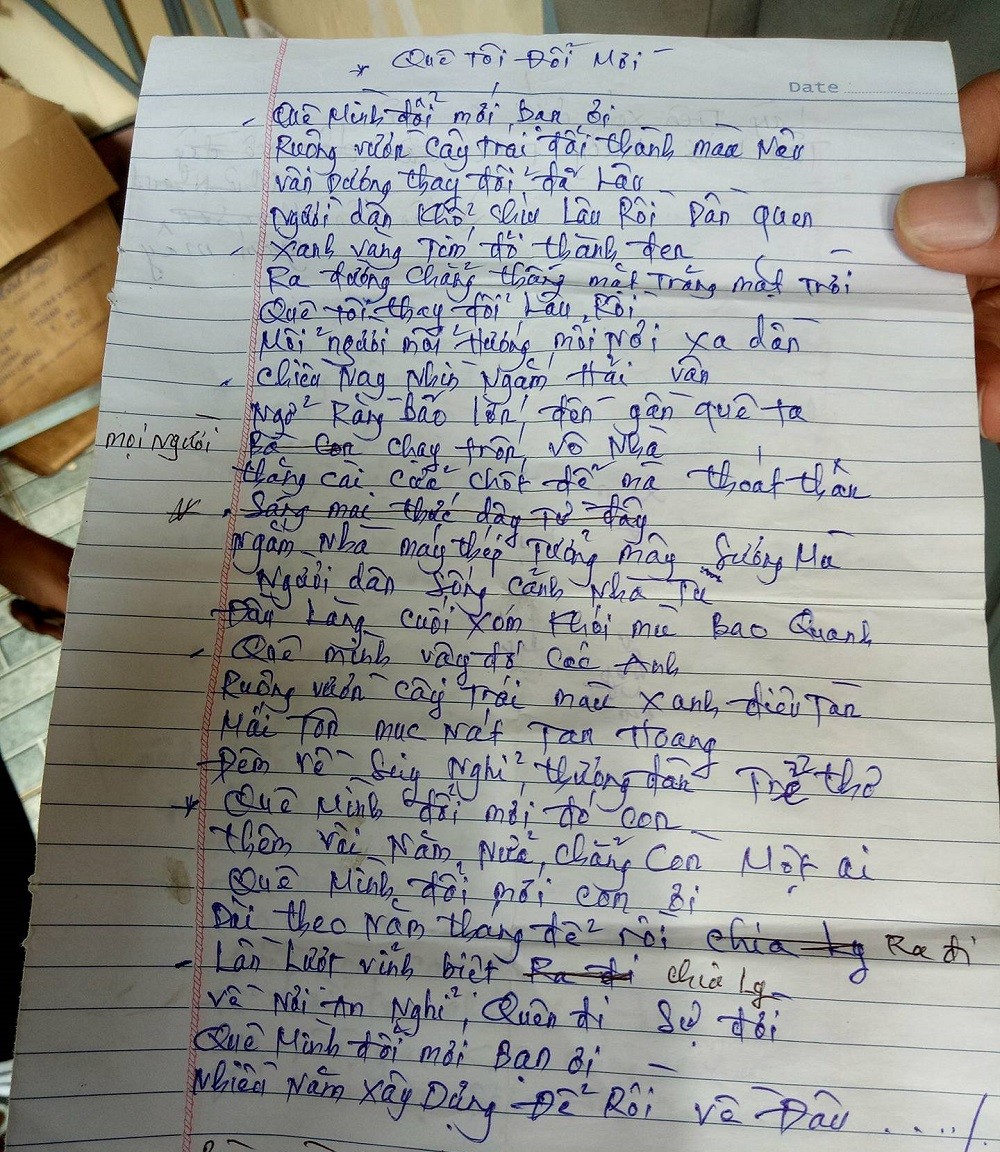 * Quê Tôi Đổi Mới
Date
- Quê Mình đổi mới Bạn ơi
Ruộng vườn Cây trái đổi thành màu Nâu
vẫn Dương thay đổi đã Lâu
Người dân Khổ chịu Lâu Rồi Dần quen
- Xanh vàng Tím đỏ thành đen
Ra đường Chẳng thấy mặt Trăng mặt Trời
Quê tôi thay đổi Lâu Rồi
Mỗi người mỗi Hướng mỗi Nơi xa dần
- Chiều Nay Nhìn Ngắm Hải vân
Ngỡ Rằng Bão lớn đến gần quê ta
mọi người chạy trốn vô Nhà
thắng cài Cửa chốt để mà thoát thân
Sáng mai thức dậy Từ đây
Ngắm Nhà máy thép Tưởng mây Sương Mù
Người dân Sống cảnh Nhà Tù
Đầu Làng cuối Xóm Khói mù Bao Quanh
- Quê mình vậy đó Các Anh
Ruộng vườn cây Trái màu Xanh điêu Tàn
Mái Tôn mục Nát Tan Hoang
Đêm về Suy Nghĩ thương đàn Trẻ thơ
* Quê Mình đổi mới đó con
thêm vài Năm Nữa chẳng Còn Một ai
Quê Mình đổi mới con ơi
Dài theo Năm tháng để rồi chia ly Ra đi
- Lần Lượt vĩnh biệt Ra đi chia Ly
về Nơi An Nghỉ, Quên đi Sự đời
Quê Mình đổi mới Bạn ơi
Nhiều Năm Xây Dựng Để Rồi Về Đâu ...../.